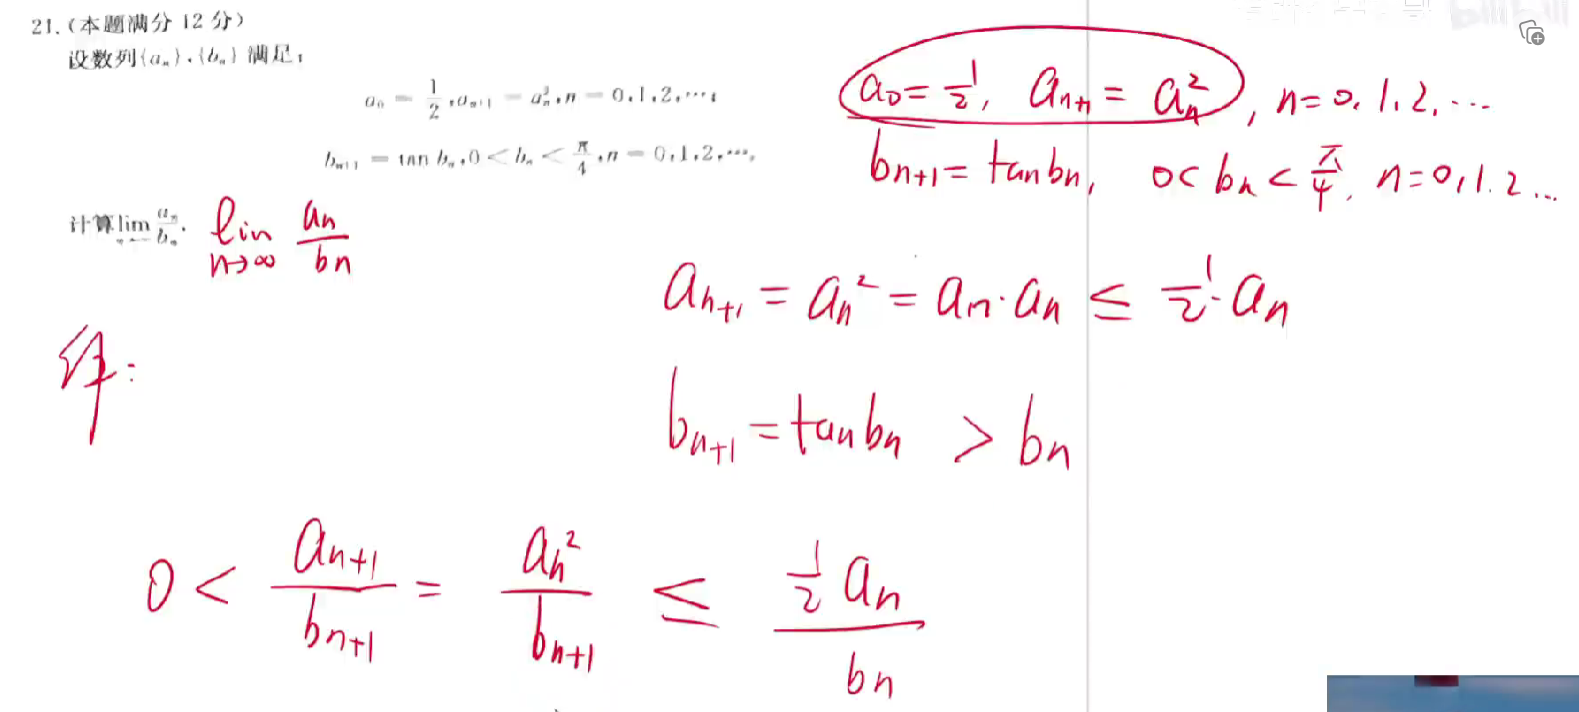 21.(本题满分 12 分)
设数列{aₙ},{bₙ}满足:
a₀ = 1/2, aₙ₊₁ = aₙ², n = 0,1,2,…;
bₙ₊₁ = tan bₙ, 0 < bₙ < π/4, n = 0,1,2,…,
计算 lim aₙ/bₙ.
lim n→∞ an/bn
a₀ = 1/2, aₙ₊₁ = aₙ², n = 0, 1, 2, …
bₙ₊₁ = tan bₙ, 0 < bₙ < π/4, n = 0, 1, 2 …
aₙ₊₁ = aₙ² = aₙ · aₙ ≤ 1/2 · aₙ
解:
bₙ₊₁ = tan bₙ > bₙ
0 < aₙ₊₁/bₙ₊₁ = aₙ²/bₙ₊₁ ≤ (1/2 aₙ)/bₙ